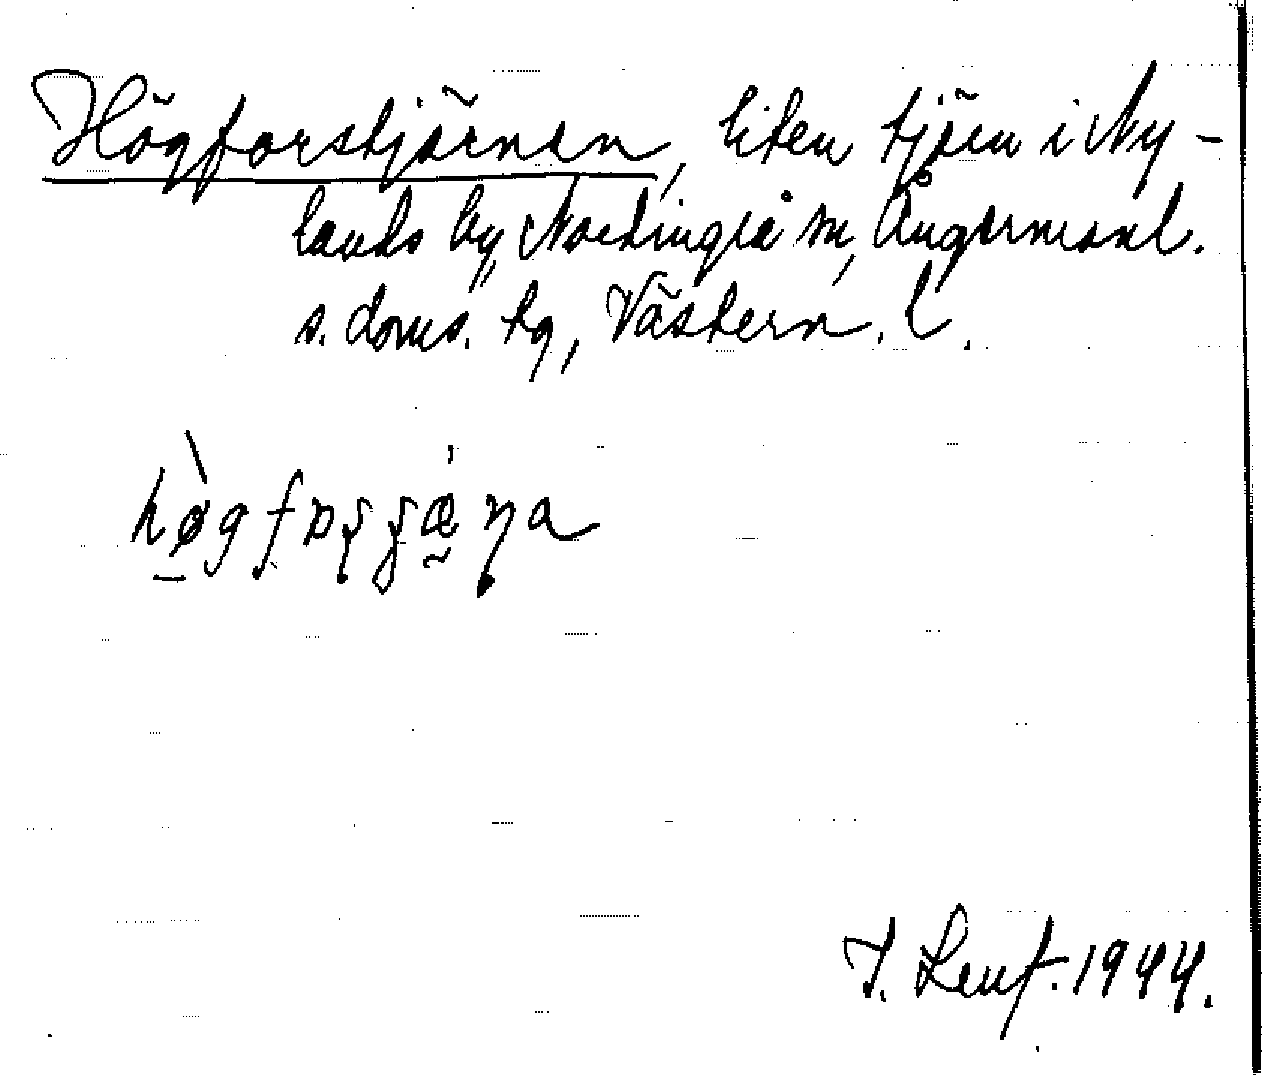 Högforstjärnen, liten tjärn i Ny-
lands by, Nordingrå sn, Ångermanl.
s. doms. tg, Västern. l.
T. Leuf. 1944.